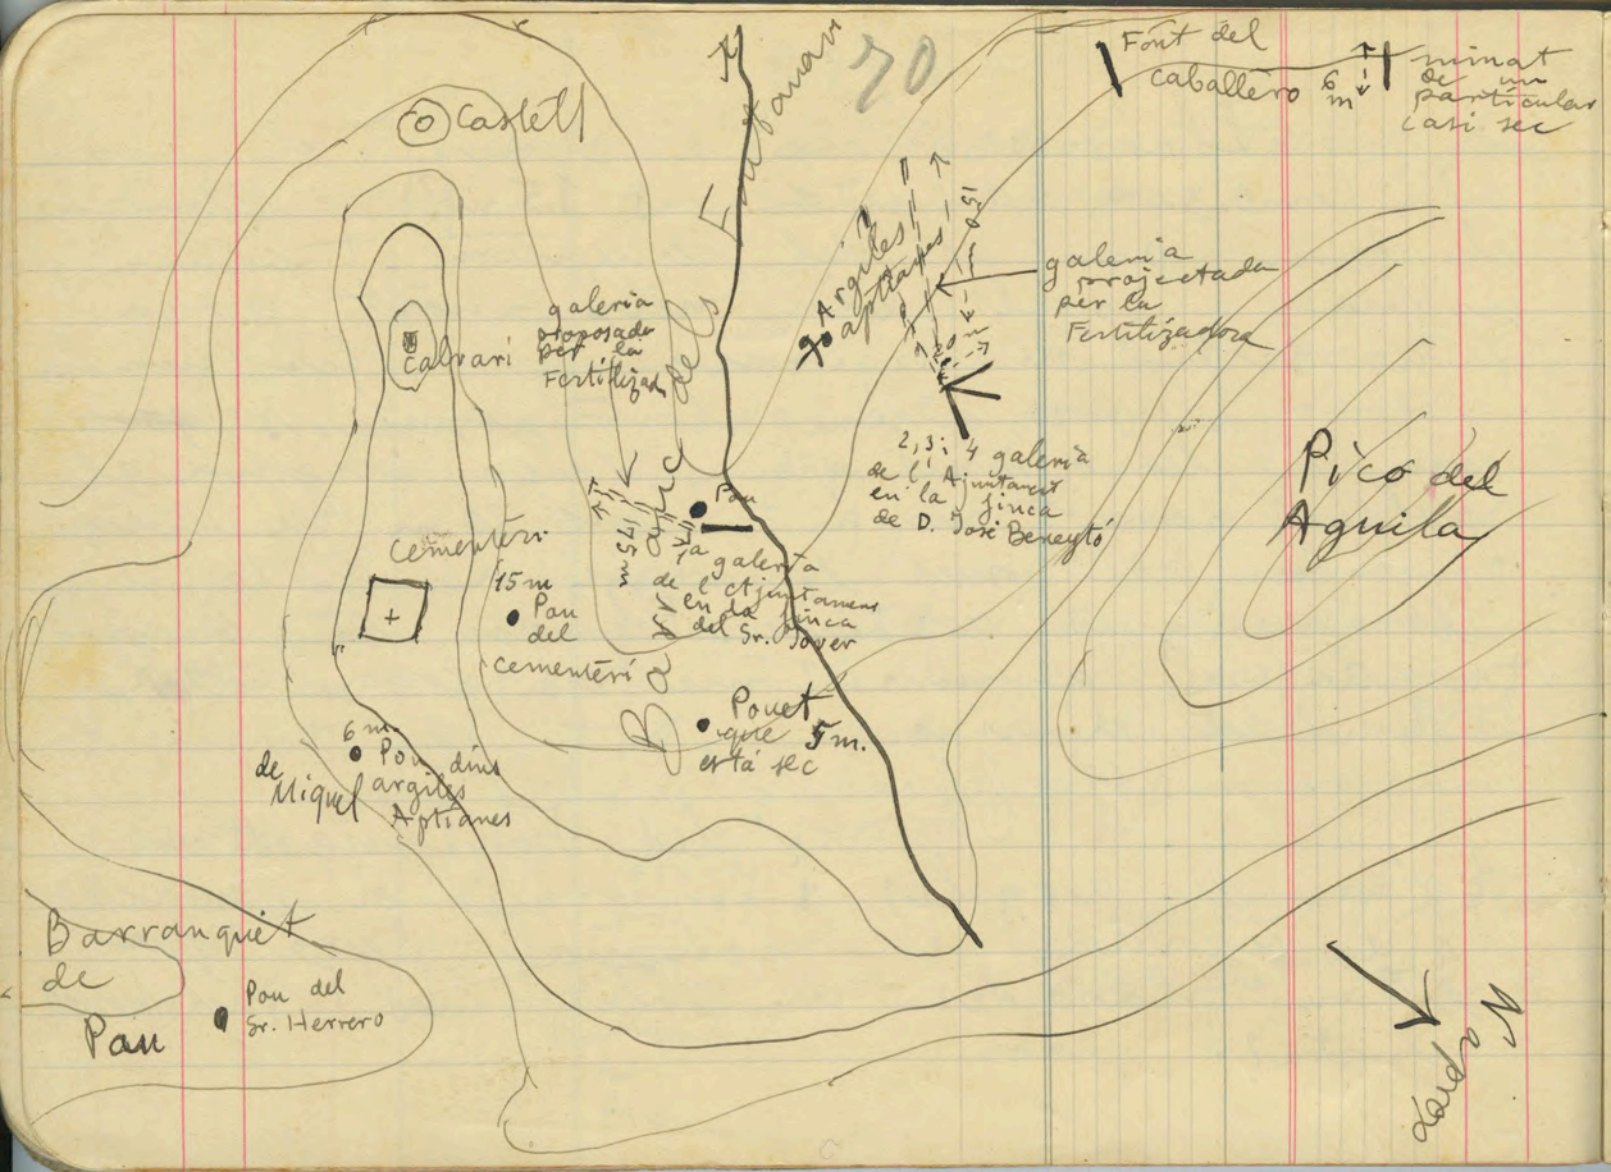 70
Font del
caballero
6
m
minat
de un
particular
casi sec
Castell
Barranc dels Fontanars
Argiles
go aptianes
150
galeria
projectada
per la
Fertilizadora
20 m
galeria
proposada
per la
Fertilizad
Calvari
2, 3 i 4 galeria
de l'Ajuntament
en la finca
de D. José Beneytó
Pico del
Aguila
Pou
175 m
1a galeria
de l'Ajuntament
en la finca
del Sr. Jover
Cementeri
+
15 m
Pou
del
cementeri
Pouet
que 5 m.
está sec
6 m.
Pou dins
argiles
Aptianes
de
Miquel
Barranquet
de
Pau
Pou del
Sr. Herrero
N